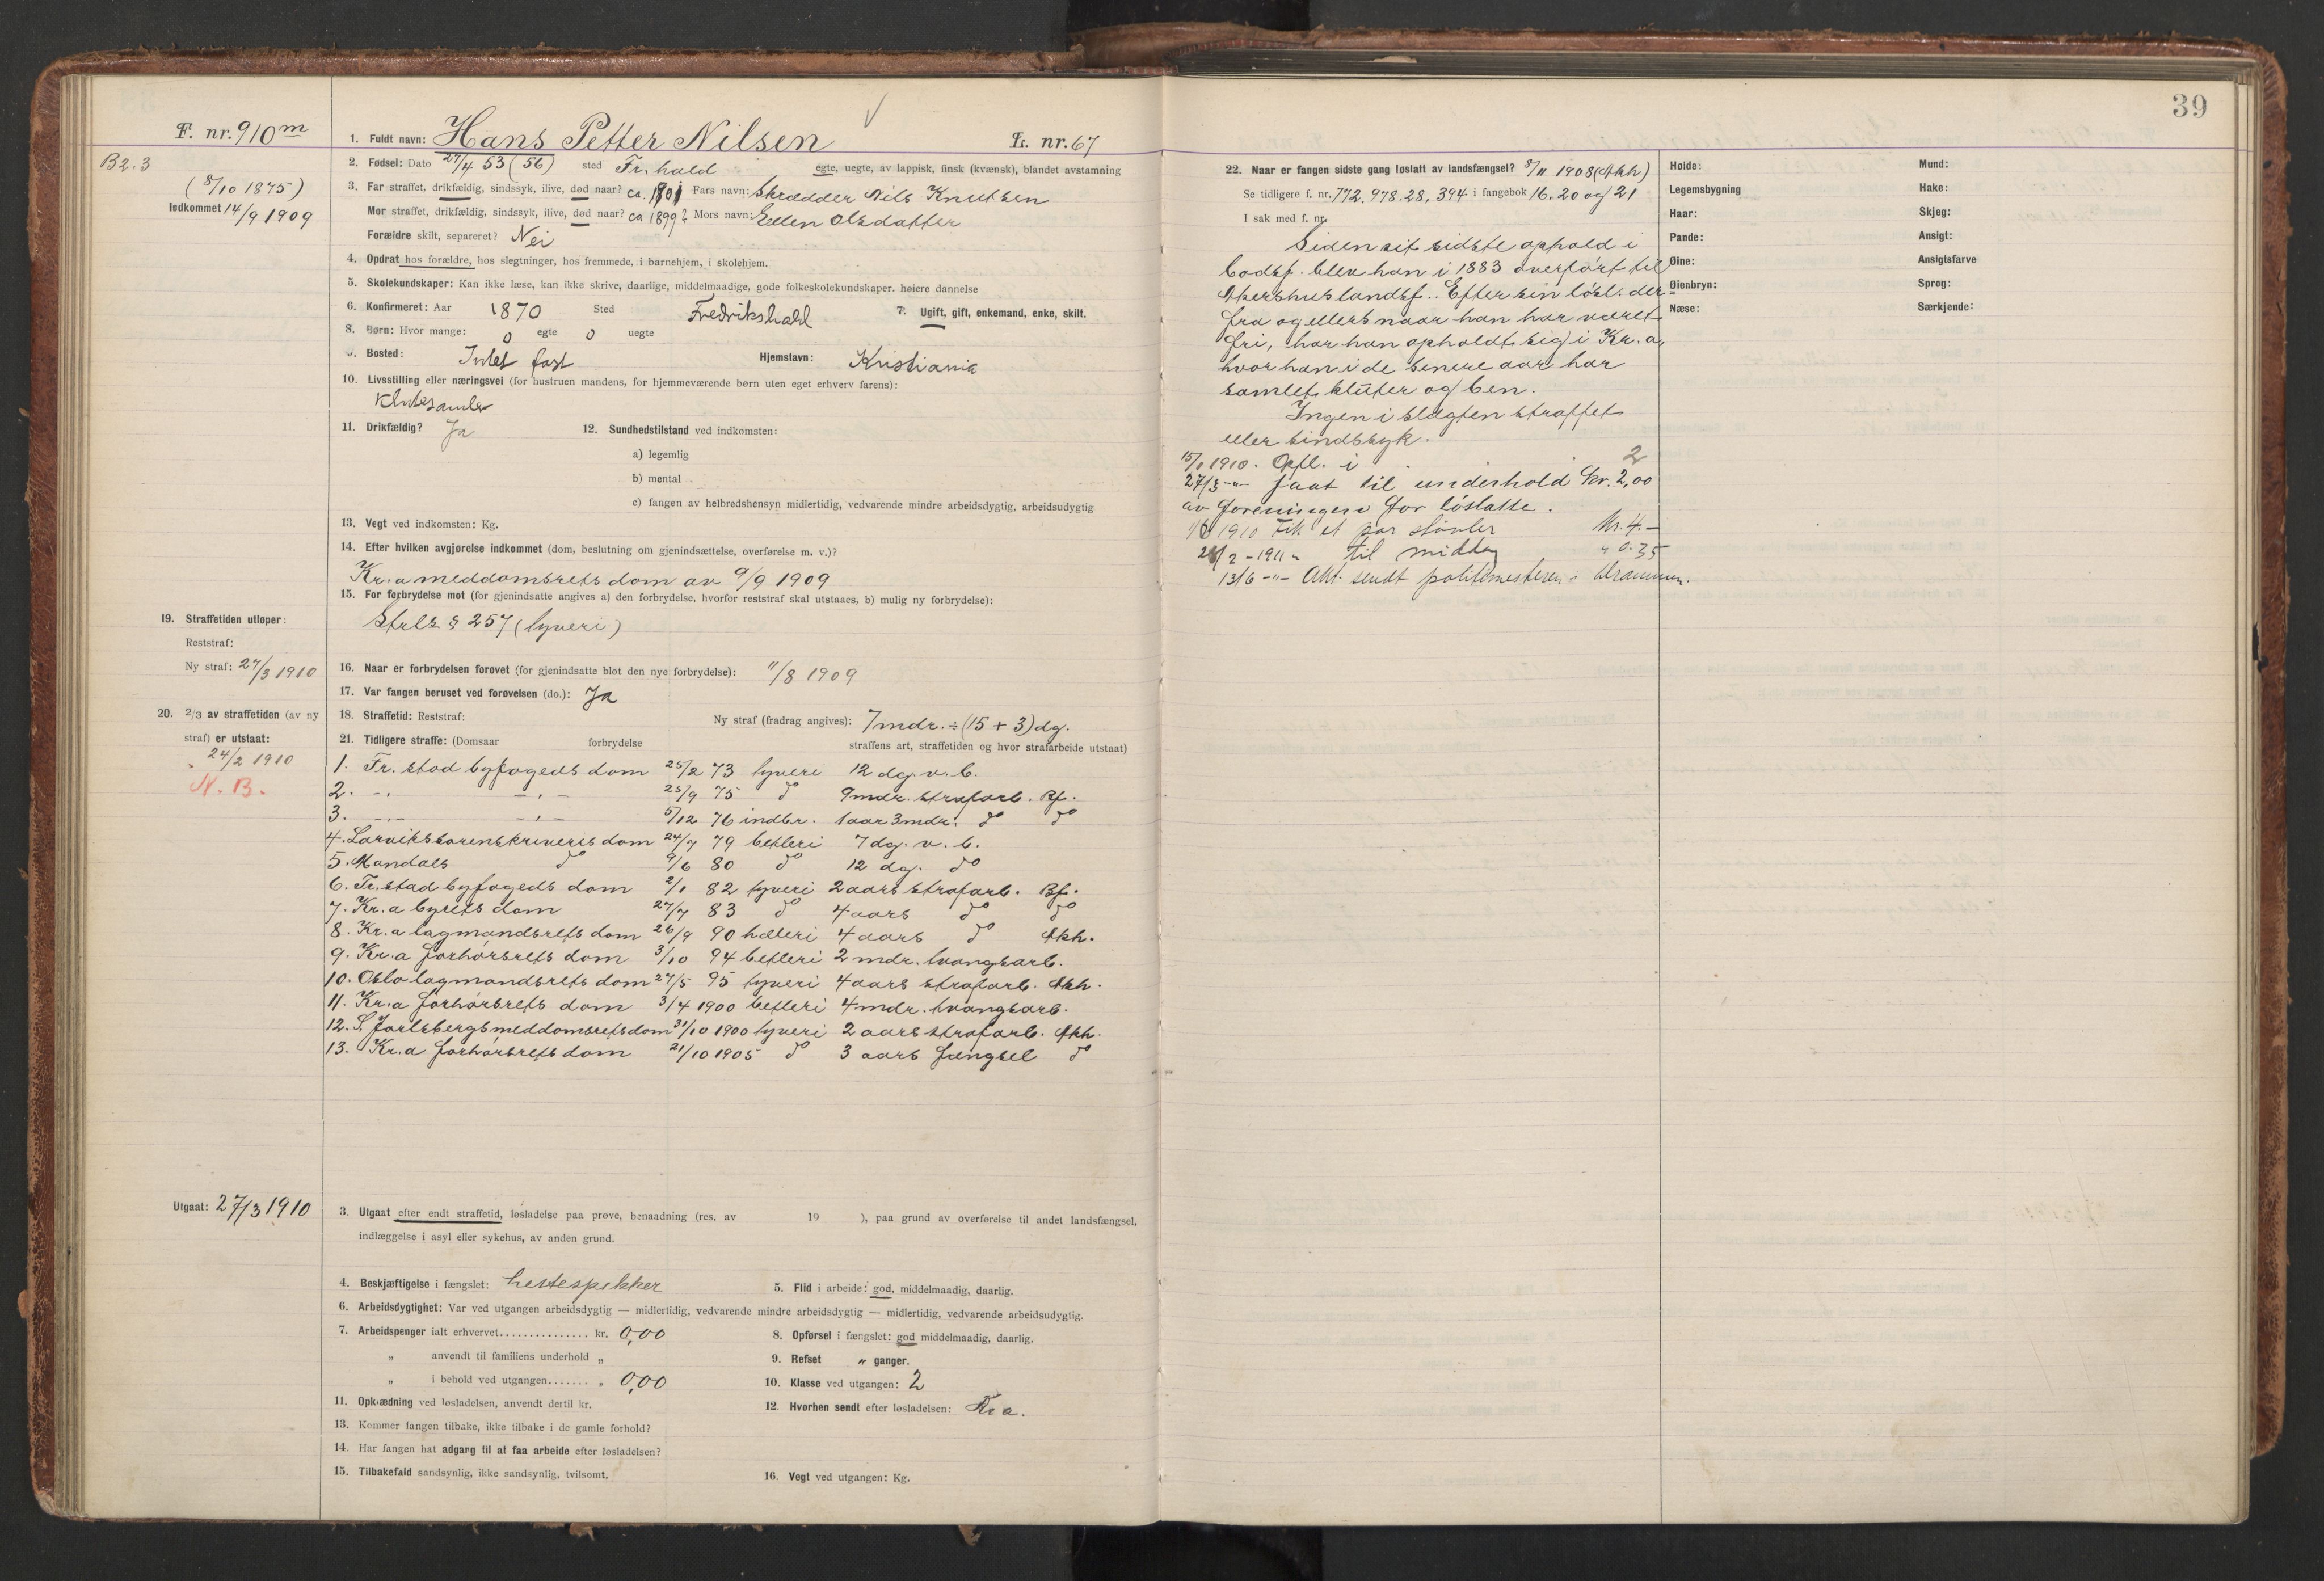 39
F. nr. 910 m
B2.3
(8/10 1875)
Indkommet 14/9 1909
1. Fuldt navn: Hans Petter Nilsen L. nr. 67
2. Fødsel: Dato 27/4 53 (56) sted Fr.hald egte, uegte, av lappisk, finsk (kvænsk), blandet avstamning
3. Far straffet, drikfældig, sindssyk, ilive, død naar? ca. 1901 Fars navn: Skrædder Nils Knutsen
Mor straffet, drikfældig, sindssyk, ilive, død naar? ca 1899? Mors navn: Ellen Olsdatter
Forældre skilt, separeret? Nei
4. Opdrat hos forældre, hos slegtninger, hos fremmede, i barnehjem, i skolehjem.
5. Skolekundskaper: Kan ikke læse, kan ikke skrive, daarlige, middelmaadige, gode folkeskolekundskaper. høiere dannelse
6. Konfirmeret: Aar 1870 Sted Fredrikshald 7. Ugift, gift, enkemand, enke, skilt.
8. Børn: Hvor mange: 0 egte 0 uegte
9. Bosted: Intet fast Hjemstavn: Kristiania
10. Livsstilling eller næringsvei (for hustruen mandens, for hjemmeværende børn uten eget erhverv farens):
Klutesamler
11. Drikfældig? Ja 12. Sundhedstilstand ved indkomsten:
a) legemlig
b) mental
c) fangen av helbredshensyn midlertidig, vedvarende mindre arbeidsdygtig, arbeidsudygtig
13. Vegt ved indkomsten: Kg.
14. Efter hvilken avgjørelse indkommet (dom, beslutning om gjenindsættelse, overførelse m. v.)?
Kr.a meddomsrets dom av 9/9 1909
15. For forbrydelse mot (for gjenindsatte angives a) den forbrydelse, hvorfor reststraf skal utstaaes, b) mulig ny forbrydelse):
Strls § 257 (tyveri)
19. Straffetiden utløper:
Reststraf:
Ny straf: 27/3 1910
16. Naar er forbrydelsen forøvet (for gjenindsatte blot den nye forbrydelse): 11/8 1909
17. Var fangen beruset ved forøvelsen (do.): Ja
20. 2/3 av straffetiden (av ny
straf) er utstaat:
24/2 1910
N. B.
18. Straffetid: Reststraf: Ny straf (fradrag angives): 7 mdr. ÷ (15 + 3) dg.
21. Tidligere straffe: (Domsaar forbrydelse straffens art, straffetiden og hvor strafarbeide utstaat)
1. Fr.stad byfogeds dom 25/2 73 tyveri 12 dg. v. b.
2. -„- -„- 25/9 75 do 9 mdr. strafarb. Bf.
3. -„- -„- 5/12 76 indbr. 1 aar 3 mdr. do do
4. Larviks sorenskriveris dom 24/7 79 betleri 7 dg. v. b.
5. Mandals do 9/6 80 do 12 dg. do
6. Fr.stad byfogeds dom 2/1 82 tyveri 2 aars strafarb. Bf.
7. Kr.a byrets dom 27/7 83 do 4 aars do do
8. Kr.a lagmandsrets dom 26/9 90 hæleri 4 aars do Akh.
9. Kr.a forhørsrets dom 3/10 94 betleri 2 mdr. tvangsarb.
10. Oslo lagmandsrets dom 27/5 95 tyveri 4 aars strafarb. Akh.
11. Kr.a forhørsrets dom 3/4 1900 betleri 4 mdr. tvangsarb.
12. S. Jarlsbergs meddomsrets dom 31/10 1900 tyveri 2 aars strafarb. Akh.
13. Kr.a forhørsrets dom 21/10 1905 do 3 aars fængsel do
Utgaat: 27/3 1910
3. Utgaat efter endt straffetid, løsladelse paa prøve, benaadning (res. av 19 ), paa grund av overførelse til andet landsfængsel,
indlæggelse i asyl eller sykehus, av anden grund.
4. Beskjæftigelse i fængslet: hestespikker 5. Flid i arbeide: god, middelmaadig, daarlig.
6. Arbeidsdygtighet: Var ved utgangen arbeidsdygtig — midlertidig, vedvarende mindre arbeidsdygtig — midlertidig, vedvarende arbeidsudygtig.
7. Arbeidspenger ialt erhvervet............... kr. 0,00 8. Opførsel i fængslet: god middelmaadig, daarlig.
„ anvendt til familiens underhold „ 9. Refset „ ganger.
„ i behold ved utgangen....... „ 0,00 10. Klasse ved utgangen: 2
11. Opklædning ved løsladelsen, anvendt dertil kr. 12. Hvorhen sendt efter løsladelsen: Kr a.
13. Kommer fangen tilbake, ikke tilbake i de gamle forhold?
14. Har fangen hat adgang til at faa arbeide efter løsladelsen?
15. Tilbakefald sandsynlig, ikke sandsynlig, tvilsomt. 16. Vegt ved utgangen: Kg.
22. Naar er fangen sidste gang løslatt av landsfængsel? 8/11 1908 (Akh)
Se tidligere f. nr. 772. 978. 28, 394 i fangebok 16. 20 og 21
I sak med f. nr.
Siden sit sidste ophold i
Bodsf. blev han i 1883 overført til
Akershus landsf.. Efter sin løsl. der-
fra og ellers naar han har været
fri, har han opholdt sig i Kr.a,
hvor han i de senere aar har
samlet kluter og ben.
Ingen i slægten straffet
eller sindssyk.
15/1 1910. Opfl. i 2
27/3 -„- faat til underhold kr. 2,00
av foreningen for løslatte.
1910 Fik et par støvler Kr. 4.-
2-1911 „ til middag „ 0.35
13/6 -„- Akt. sendt politimesteren i Drammen.
Høide:
Legemsbygning
Haar:
Pande:
Øine:
Øienbryn:
Næse:
Mund:
Hake:
Skjeg:
Ansigt:
Ansigtsfarve
Sprog:
Særkjende: